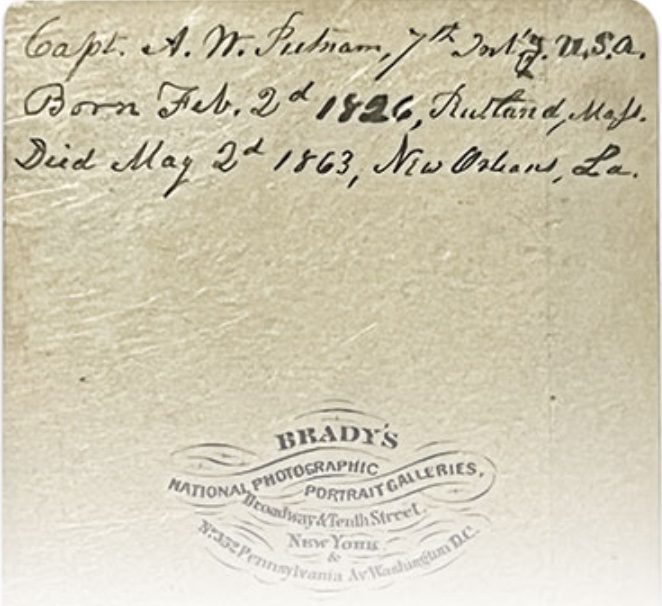 Capt. A. W. Putnam, 7th Inf'y. U.S.A.
Born Feb. 2d 1826, Rutland, Mass.
Died May 2d 1863, New Orleans, La.
BRADY'S
NATIONAL PHOTOGRAPHIC
PORTRAIT GALLERIES,
Broadway & Tenth Street.
NEW YORK
&
No. 352 Pennsylvania Av. Washington D.C.